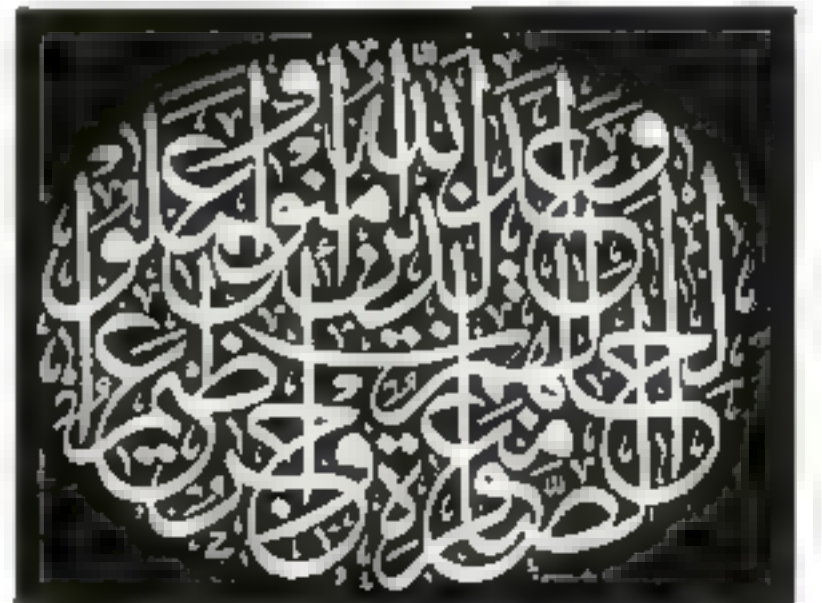 وعد الله الذين امنوا وعملوا الصلحت منهم مغفرة واجرا عظيما